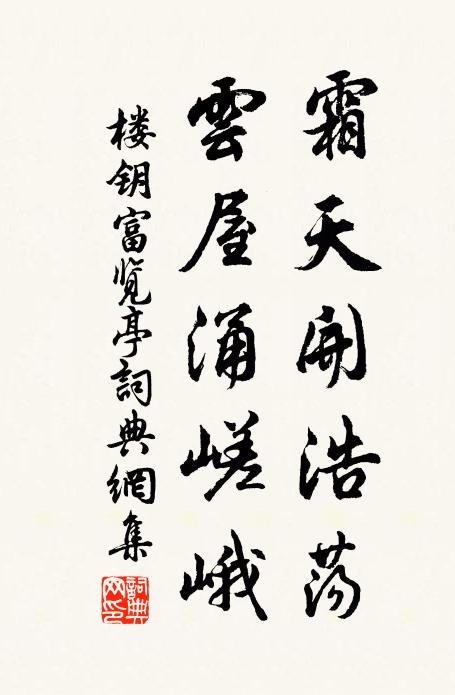 霜天開浩荡
雲屋涌嵯峨
楼钥富览亭詞典網集
詞典网印